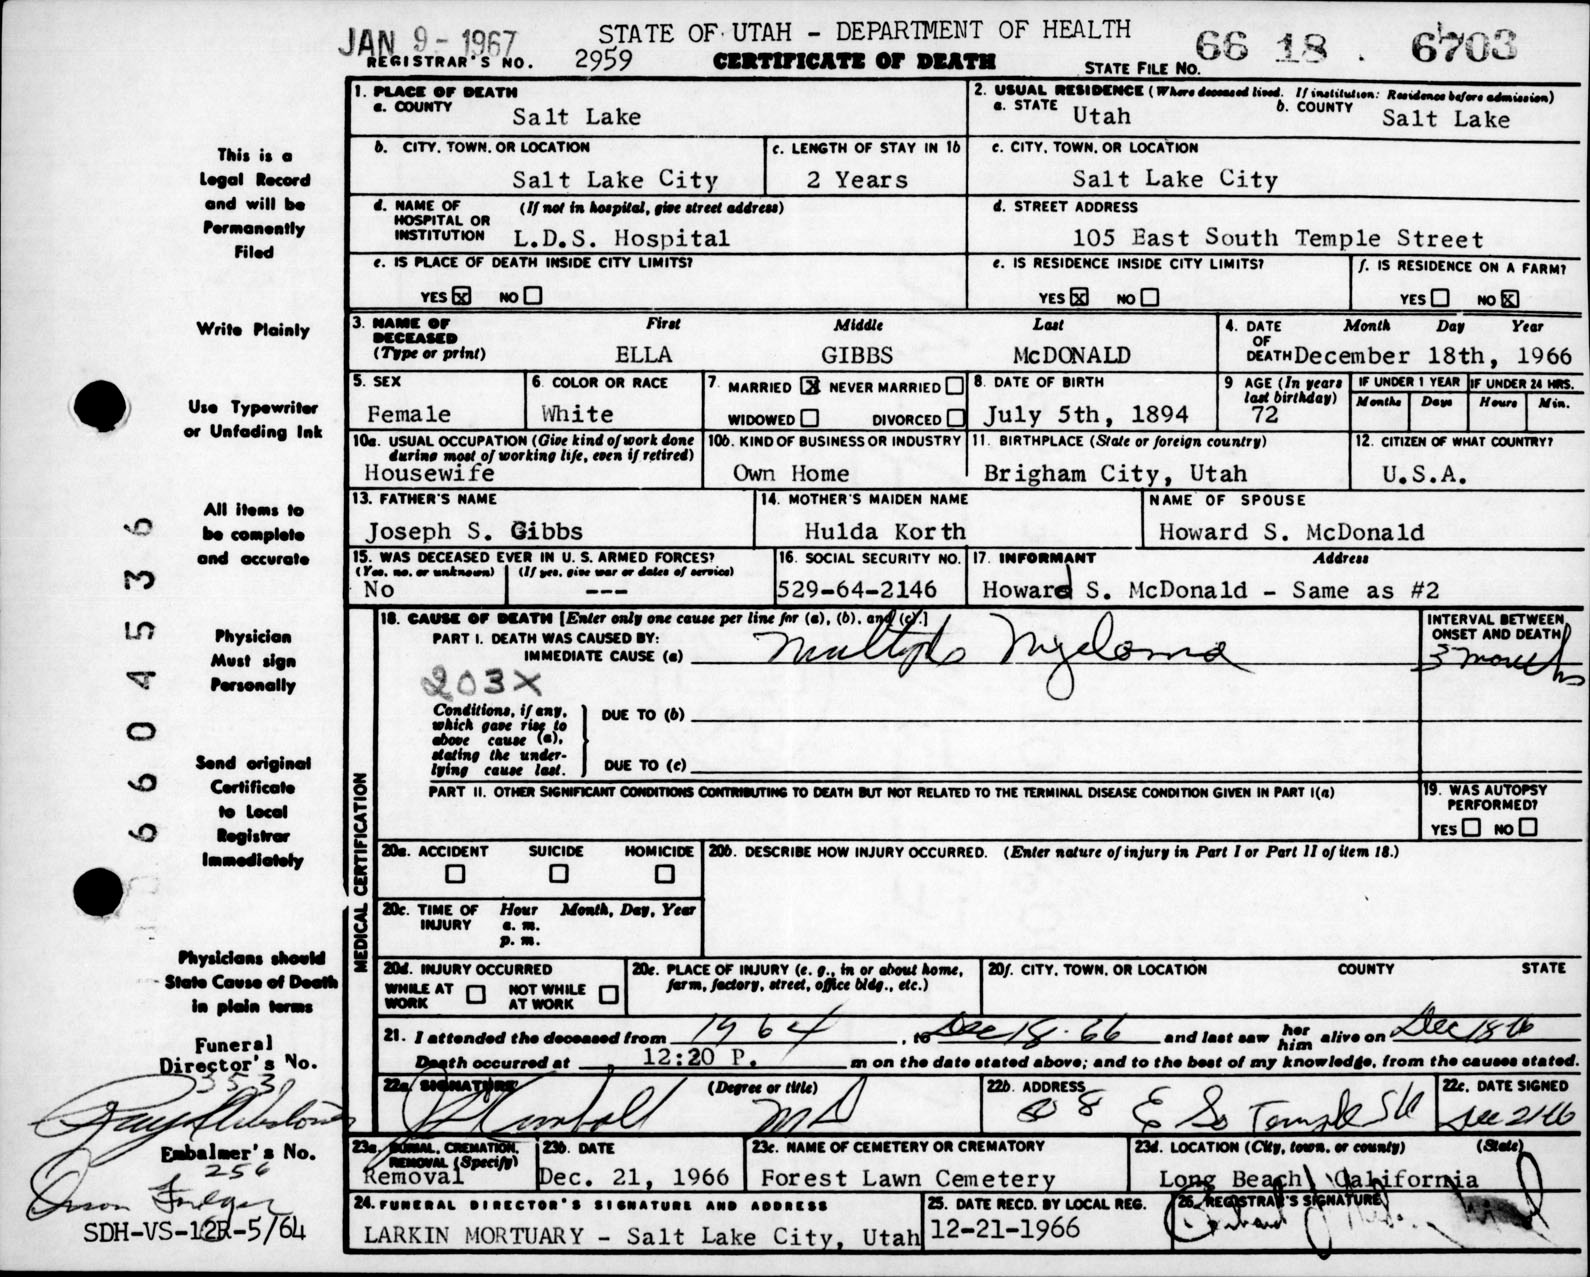 JAN 9 - 1967
STATE OF UTAH - DEPARTMENT OF HEALTH
66 18 . 6703
REGISTRAR'S NO. 2959
CERTIFICATE OF DEATH
STATE FILE NO.
This is a
Legal Record
and will be
Permanently
Filed
Write Plainly
Use Typewriter
or Unfading Ink
All items to
be complete
and accurate
Physician
Must sign
Personally
Send original
Certificate
to Local
Registrar
Immediately
Physicians should
State Cause of Death
in plain terms
Funeral
Director's No.
353
Embalmer's No.
256
SDH-VS-12R-5/64
6604536
1. PLACE OF DEATH
a. COUNTY
Salt Lake
2. USUAL RESIDENCE (Where deceased lived. If institution: Residence before admission)
a. STATE Utah
b. COUNTY Salt Lake
b. CITY, TOWN, OR LOCATION
Salt Lake City
c. LENGTH OF STAY IN 1b
2 Years
c. CITY, TOWN, OR LOCATION
Salt Lake City
d. NAME OF HOSPITAL OR INSTITUTION (If not in hospital, give street address)
L.D.S. Hospital
d. STREET ADDRESS
105 East South Temple Street
e. IS PLACE OF DEATH INSIDE CITY LIMITS?
YES X NO
e. IS RESIDENCE INSIDE CITY LIMITS?
YES X NO
f. IS RESIDENCE ON A FARM?
YES NO X
3. NAME OF DECEASED (Type or print)
First Middle Last
ELLA GIBBS McDONALD
4. DATE OF DEATH
Month Day Year
December 18th, 1966
5. SEX
Female
6. COLOR OR RACE
White
7. MARRIED X NEVER MARRIED
WIDOWED DIVORCED
8. DATE OF BIRTH
July 5th, 1894
9 AGE (In years last birthday)
72
IF UNDER 1 YEAR
Months Days
IF UNDER 24 HRS.
Hours Min.
10a. USUAL OCCUPATION (Give kind of work done during most of working life, even if retired)
Housewife
10b. KIND OF BUSINESS OR INDUSTRY
Own Home
11. BIRTHPLACE (State or foreign country)
Brigham City, Utah
12. CITIZEN OF WHAT COUNTRY?
U.S.A.
13. FATHER'S NAME
Joseph S. Gibbs
14. MOTHER'S MAIDEN NAME
Hulda Korth
NAME OF SPOUSE
Howard S. McDonald
15. WAS DECEASED EVER IN U. S. ARMED FORCES?
(Yes, no, or unknown) (If yes, give war or dates of service)
No ---
16. SOCIAL SECURITY NO.
529-64-2146
17. INFORMANT Address
Howard S. McDonald - Same as #2
MEDICAL CERTIFICATION
18. CAUSE OF DEATH [Enter only one cause per line for (a), (b), and (c).]
PART I. DEATH WAS CAUSED BY:
IMMEDIATE CAUSE (a) Multiple Myeloma
INTERVAL BETWEEN ONSET AND DEATH
3 months
203X
Conditions, if any, which gave rise to above cause (a), stating the underlying cause last.
DUE TO (b)
DUE TO (c)
PART II. OTHER SIGNIFICANT CONDITIONS CONTRIBUTING TO DEATH BUT NOT RELATED TO THE TERMINAL DISEASE CONDITION GIVEN IN PART I(a)
19. WAS AUTOPSY PERFORMED?
YES NO
20a. ACCIDENT SUICIDE HOMICIDE
20b. DESCRIBE HOW INJURY OCCURRED. (Enter nature of injury in Part I or Part II of item 18.)
20c. TIME OF INJURY
Hour Month, Day, Year
a. m.
p. m.
20d. INJURY OCCURRED
WHILE AT WORK NOT WHILE AT WORK
20e. PLACE OF INJURY (e. g., in or about home, farm, factory, street, office bldg., etc.)
20f. CITY, TOWN, OR LOCATION COUNTY STATE
21. I attended the deceased from 1964, to Dec 18-66 and last saw her him alive on Dec 18 66
Death occurred at 12:20 P. m on the date stated above; and to the best of my knowledge, from the causes stated.
22a SIGNATURE (Degree or title)
Kimball MD
22b. ADDRESS
E So Temple
22c. DATE SIGNED
Dec 21-66
23a. BURIAL, CREMATION, REMOVAL (Specify)
Removal
23b. DATE
Dec. 21, 1966
23c. NAME OF CEMETERY OR CREMATORY
Forest Lawn Cemetery
23d. LOCATION (City, town, or county) (State)
Long Beach, California
24. FUNERAL DIRECTOR'S SIGNATURE AND ADDRESS
LARKIN MORTUARY - Salt Lake City, Utah
25. DATE RECD. BY LOCAL REG.
12-21-1966
26. REGISTRAR'S SIGNATURE